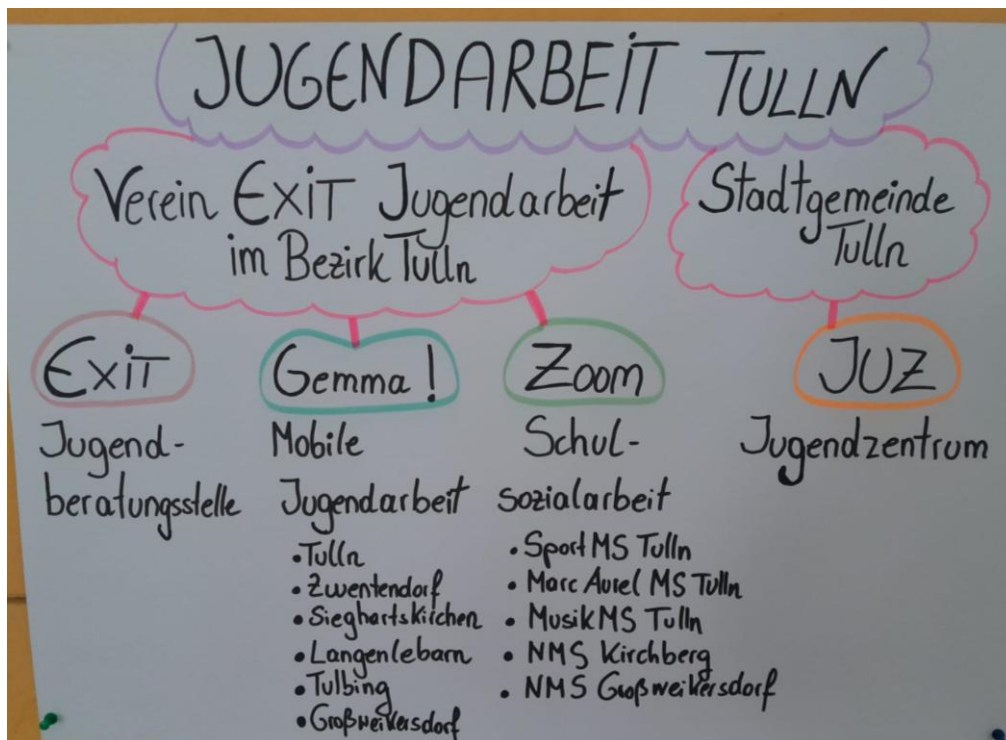 JUGENDARBEIT TULLN
Verein EXIT Jugendarbeit
im Bezirk Tulln
Stadtgemeinde
Tulln
EXIT
Jugend-
beratungsstelle
Gemma!
Mobile
Jugendarbeit
• Tulln
• Zwentendorf
• Sieghartskirchen
• Langenlebarn
• Tulbing
• Großweikersdorf
Zoom
Schul-
sozialarbeit
• Sport MS Tulln
• Marc Aurel MS Tulln
• Musik MS Tulln
• NMS Kirchberg
• NMS Großweikersdorf
JUZ
Jugendzentrum